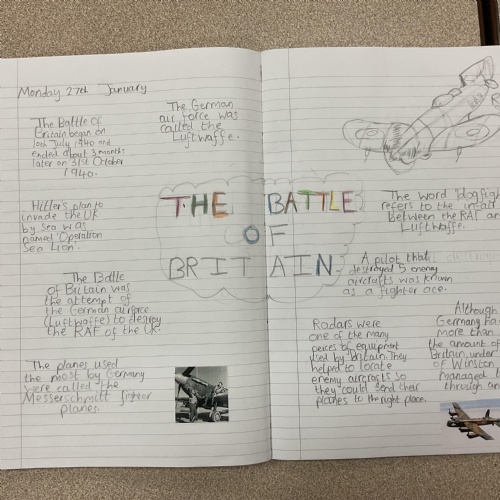 Monday 27th January
The Battle of
Britain began on
10th July 1940 and
ended about 3 months
later on 31st October
1940.
The German
air force was
called the
Luftwaffe.
Hitler's plan to
invade the UK
by Sea was
named 'Operation
Sea Lion'.
The Battle
of Britain was
the attempt of
the German airforce
(Luftwaffe) to destroy
the RAF of the UK.
The planes used
the most by Germany
were called the
Messerschmitt fighter
planes.
THE BATTLE
OF
BRITAIN
The word 'dogfigh
refers to the
between the RAF an
Luftwaffe.
A pilot that
destroyed 5 enemy
aircrafts was known
as a fighter ace.
Radars were
one of the many
pieces of equipment
used by Britain. They
helped to locate
enemy aircrafts so
they could send their
planes to the right place.
Although
Germany ha
more than
the amount of
Britain, under
of Winston
managed t
through an